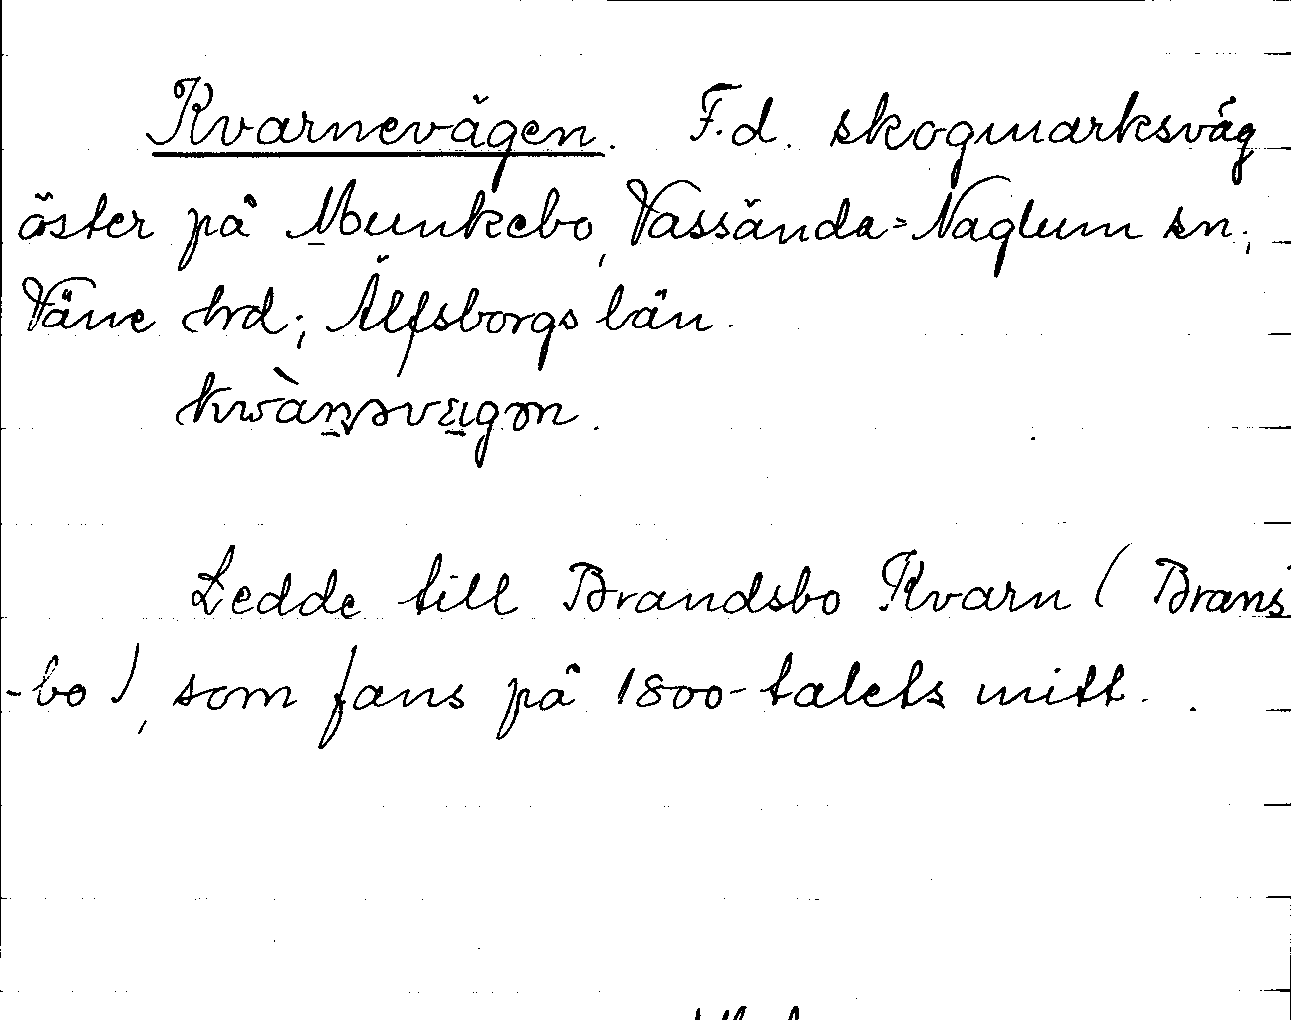 Kvarnevägen. F.d. skogmarksväg
öster på Munkebo, Vassända-Naglum sn;
Väne hrd; Älfsborgs län.
Ledde till Brandsbo Kvarn (Brans
-bo), som fans på 1800-talets mitt.